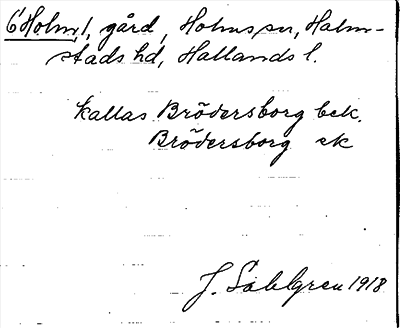 6 Holm, 1, gård, Holms sn, Halm-
stads hd, Hallands l.
kallas Brödersborg bek.
Brödersborg ek
J. Sahlgren 1918.